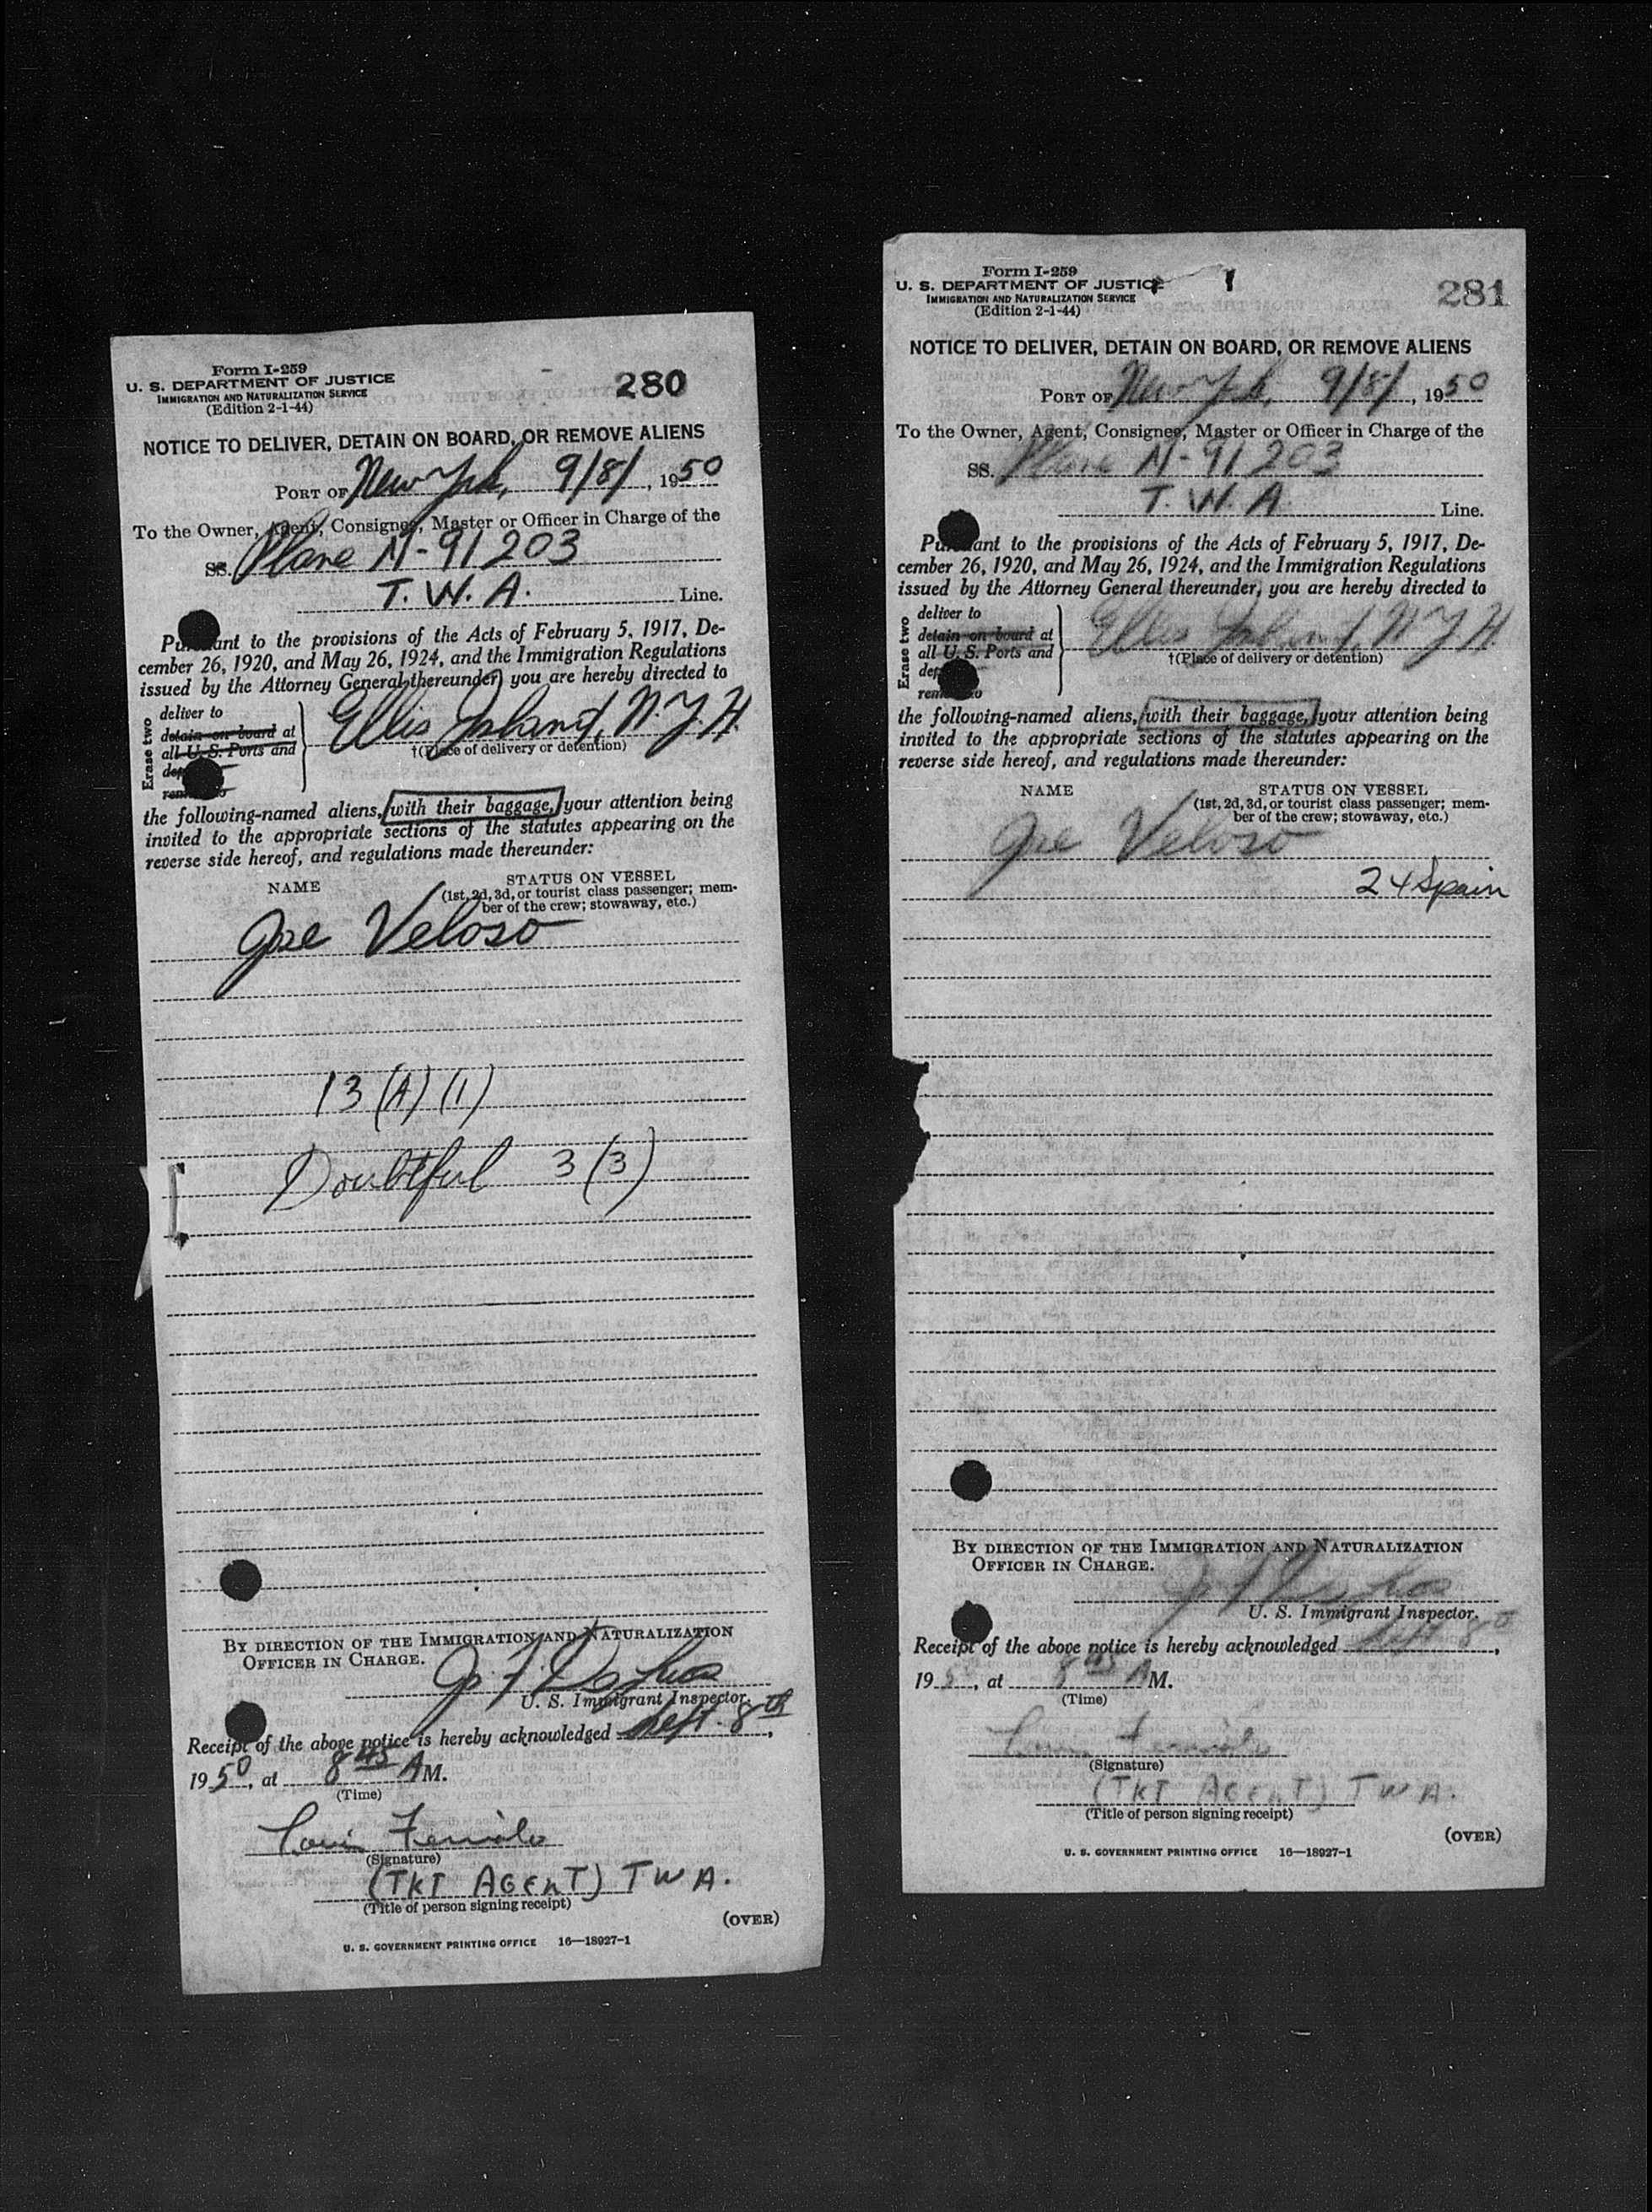 Form I-259
U. S. DEPARTMENT OF JUSTICE
IMMIGRATION AND NATURALIZATION SERVICE
(Edition 2-1-44)
280
NOTICE TO DELIVER, DETAIN ON BOARD, OR REMOVE ALIENS
PORT OF New York, 9/8/, 1950
To the Owner, Agent, Consignee, Master or Officer in Charge of the
SS. Plane N-91203
T. W. A. Line.
Pursuant to the provisions of the Acts of February 5, 1917, De-
cember 26, 1920, and May 26, 1924, and the Immigration Regulations
issued by the Attorney General thereunder, you are hereby directed to
Erase two
deliver to
detain on board at
all U. S. Ports and
Ellis Island, N.Y.H.
†(Place of delivery or detention)
the following-named aliens, with their baggage, your attention being
invited to the appropriate sections of the statutes appearing on the
reverse side hereof, and regulations made thereunder:
NAME
STATUS ON VESSEL
(1st, 2d, 3d, or tourist class passenger; mem-
ber of the crew; stowaway, etc.)
Joe Veloso
13 (A) (1)
Doubtful 3 (3)
BY DIRECTION OF THE IMMIGRATION AND NATURALIZATION
OFFICER IN CHARGE.
U. S. Immigrant Inspector.
Receipt of the above notice is hereby acknowledged Sept. 8th,
1950, at 8 45 AM.
(Time)
(Signature)
(TKT AGENT) TWA.
(Title of person signing receipt)
(OVER)
U. S. GOVERNMENT PRINTING OFFICE 16—18927-1
Form I-259
U. S. DEPARTMENT OF JUSTICE
IMMIGRATION AND NATURALIZATION SERVICE
(Edition 2-1-44)
281
NOTICE TO DELIVER, DETAIN ON BOARD, OR REMOVE ALIENS
PORT OF New York, 9/8/, 1950
To the Owner, Agent, Consignee, Master or Officer in Charge of the
SS. Plane N-91203
T. W. A. Line.
Pursuant to the provisions of the Acts of February 5, 1917, De-
cember 26, 1920, and May 26, 1924, and the Immigration Regulations
issued by the Attorney General thereunder, you are hereby directed to
Erase two
deliver to
detain on board at
all U. S. Ports and
Ellis Island, N Y H.
†(Place of delivery or detention)
the following-named aliens, with their baggage, your attention being
invited to the appropriate sections of the statutes appearing on the
reverse side hereof, and regulations made thereunder:
NAME
STATUS ON VESSEL
(1st, 2d, 3d, or tourist class passenger; mem-
ber of the crew; stowaway, etc.)
Joe Veloso
24 Spain
BY DIRECTION OF THE IMMIGRATION AND NATURALIZATION
OFFICER IN CHARGE.
U. S. Immigrant Inspector.
Receipt of the above notice is hereby acknowledged Sept 8th,
1950, at 8 45 AM.
(Time)
(Signature)
(TKT AGENT) TWA.
(Title of person signing receipt)
(OVER)
U. S. GOVERNMENT PRINTING OFFICE 16—18927-1